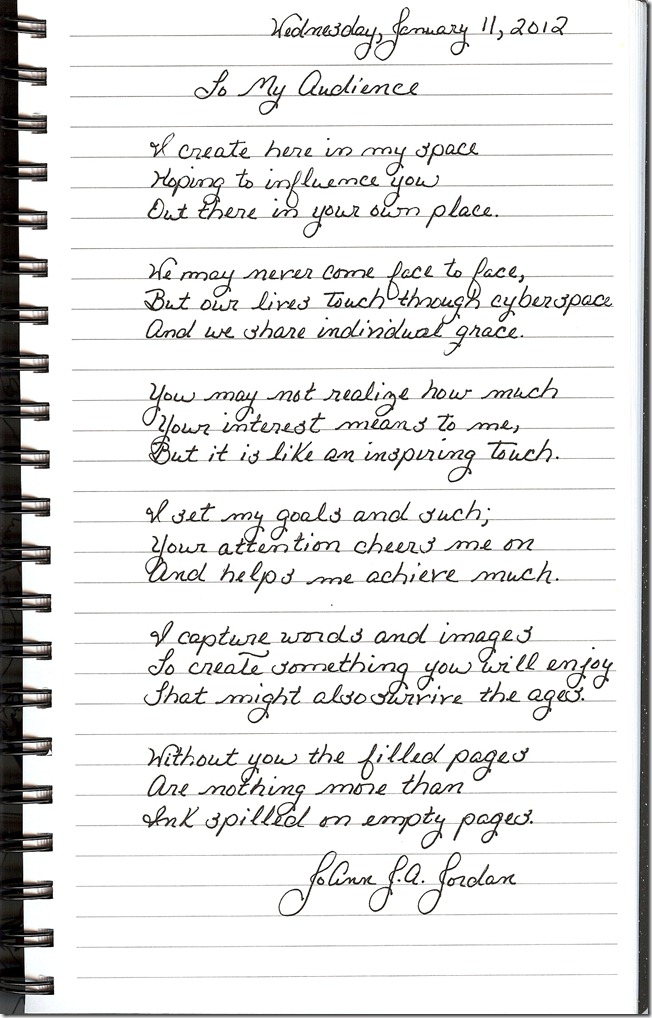 Wednesday, January 11, 2012
To My Audience
I create here in my space
Hoping to influence you
Out there in your own place.
We may never come face to face,
But our lives touch through cyberspace
And we share individual grace.
You may not realize how much
Your interest means to me,
But it is like an inspiring touch.
I set my goals and such;
Your attention cheers me on
And helps me achieve much.
I capture words and images
To create something you will enjoy
That might also survive the ages.
Without you the filled pages
Are nothing more than
Ink spilled on empty pages.
JoAnn J.A. Jordan